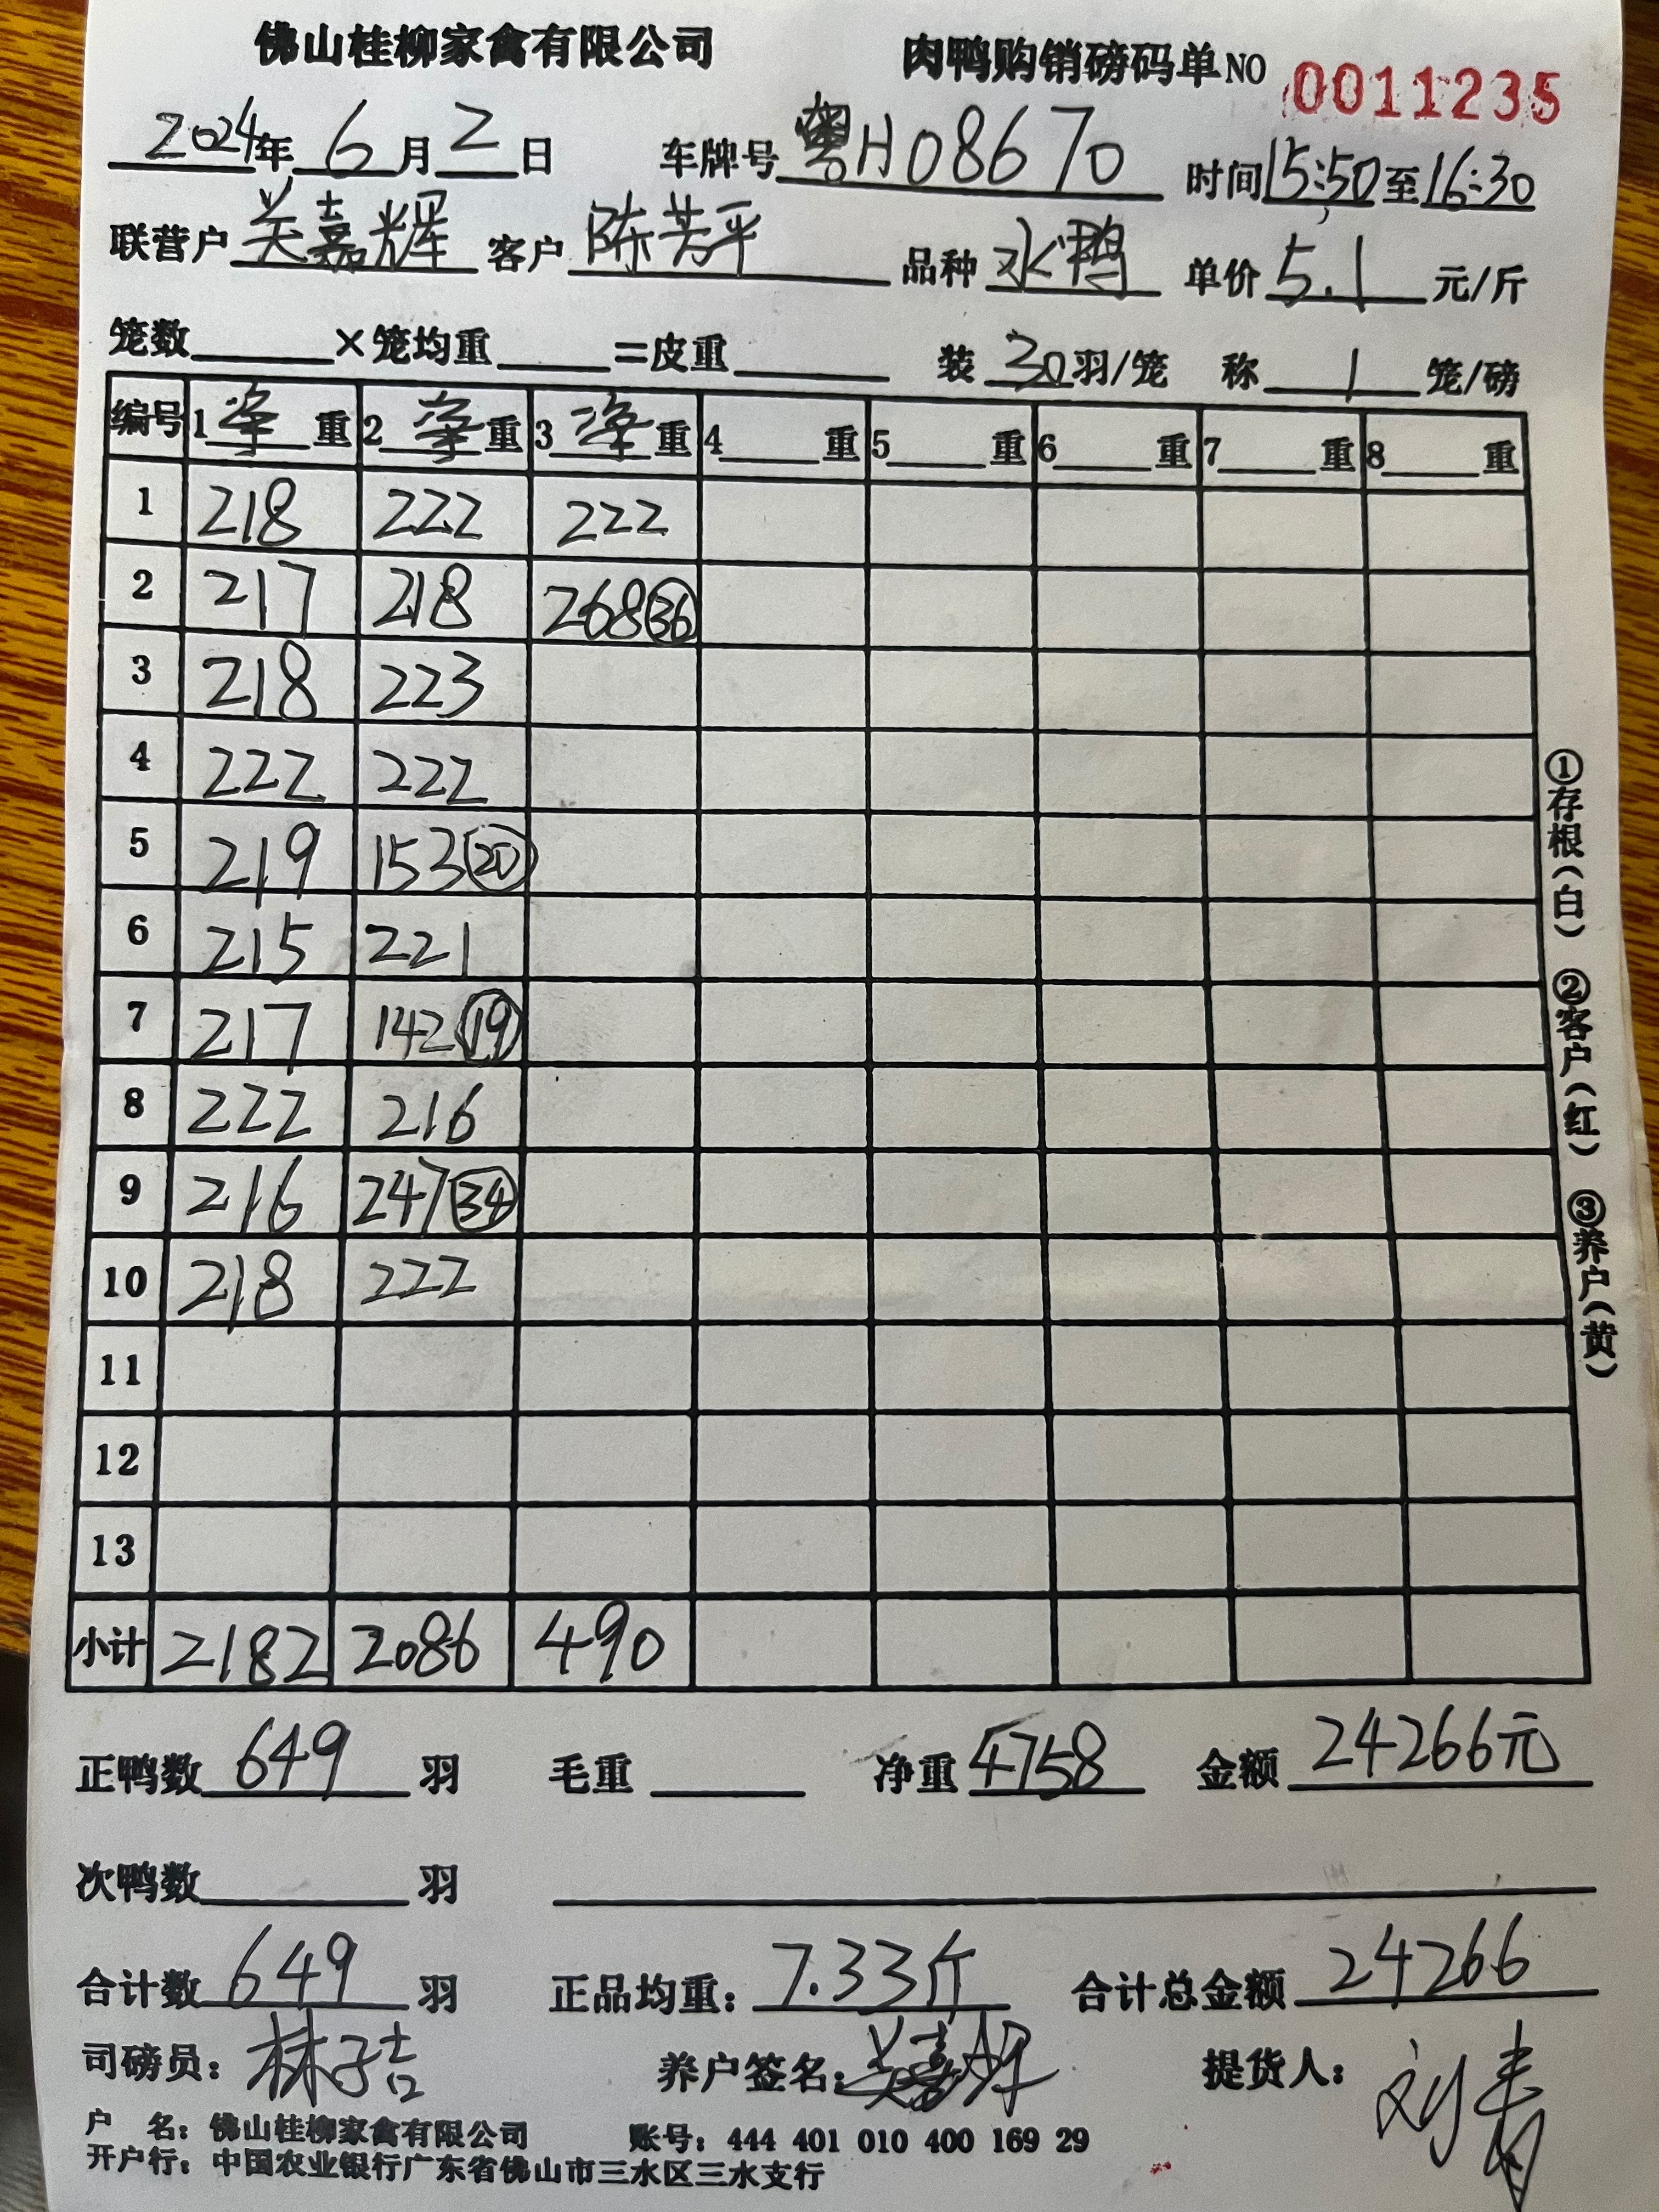 佛山桂柳家禽有限公司 肉鸭购销磅码单NO 0011235
2024年 6月 2日 车牌号 粤H08670 时间15:50至16:30
联营户 关嘉辉 客户 陈芳平 品种 水鸭 单价 5.1 元/斤
笼数 ×笼均重 =皮重 装 30羽/笼 称 1 笼/磅
编号 1净重 2净重 3净重 4重 5重 6重 7重 8重
1 218 222 222
2 217 218 268㊱
3 218 223
4 222 222
5 219 153⑳
6 215 221
7 217 142⑲
8 222 216
9 216 247㉞
10 218 222
11
12
13
小计 2182 2086 490
①存根(白) ②客户(红) ③养户(黄)
正鸭数 649 羽 毛重 净重 4758 金额 24266元
次鸭数 羽
合计数 649 羽 正品均重: 7.33斤 合计总金额 24266
司磅员: 林子吉 养户签名: 提货人:
户 名: 佛山桂柳家禽有限公司 账号: 444 401 010 400 169 29
开户行: 中国农业银行广东省佛山市三水区三水支行